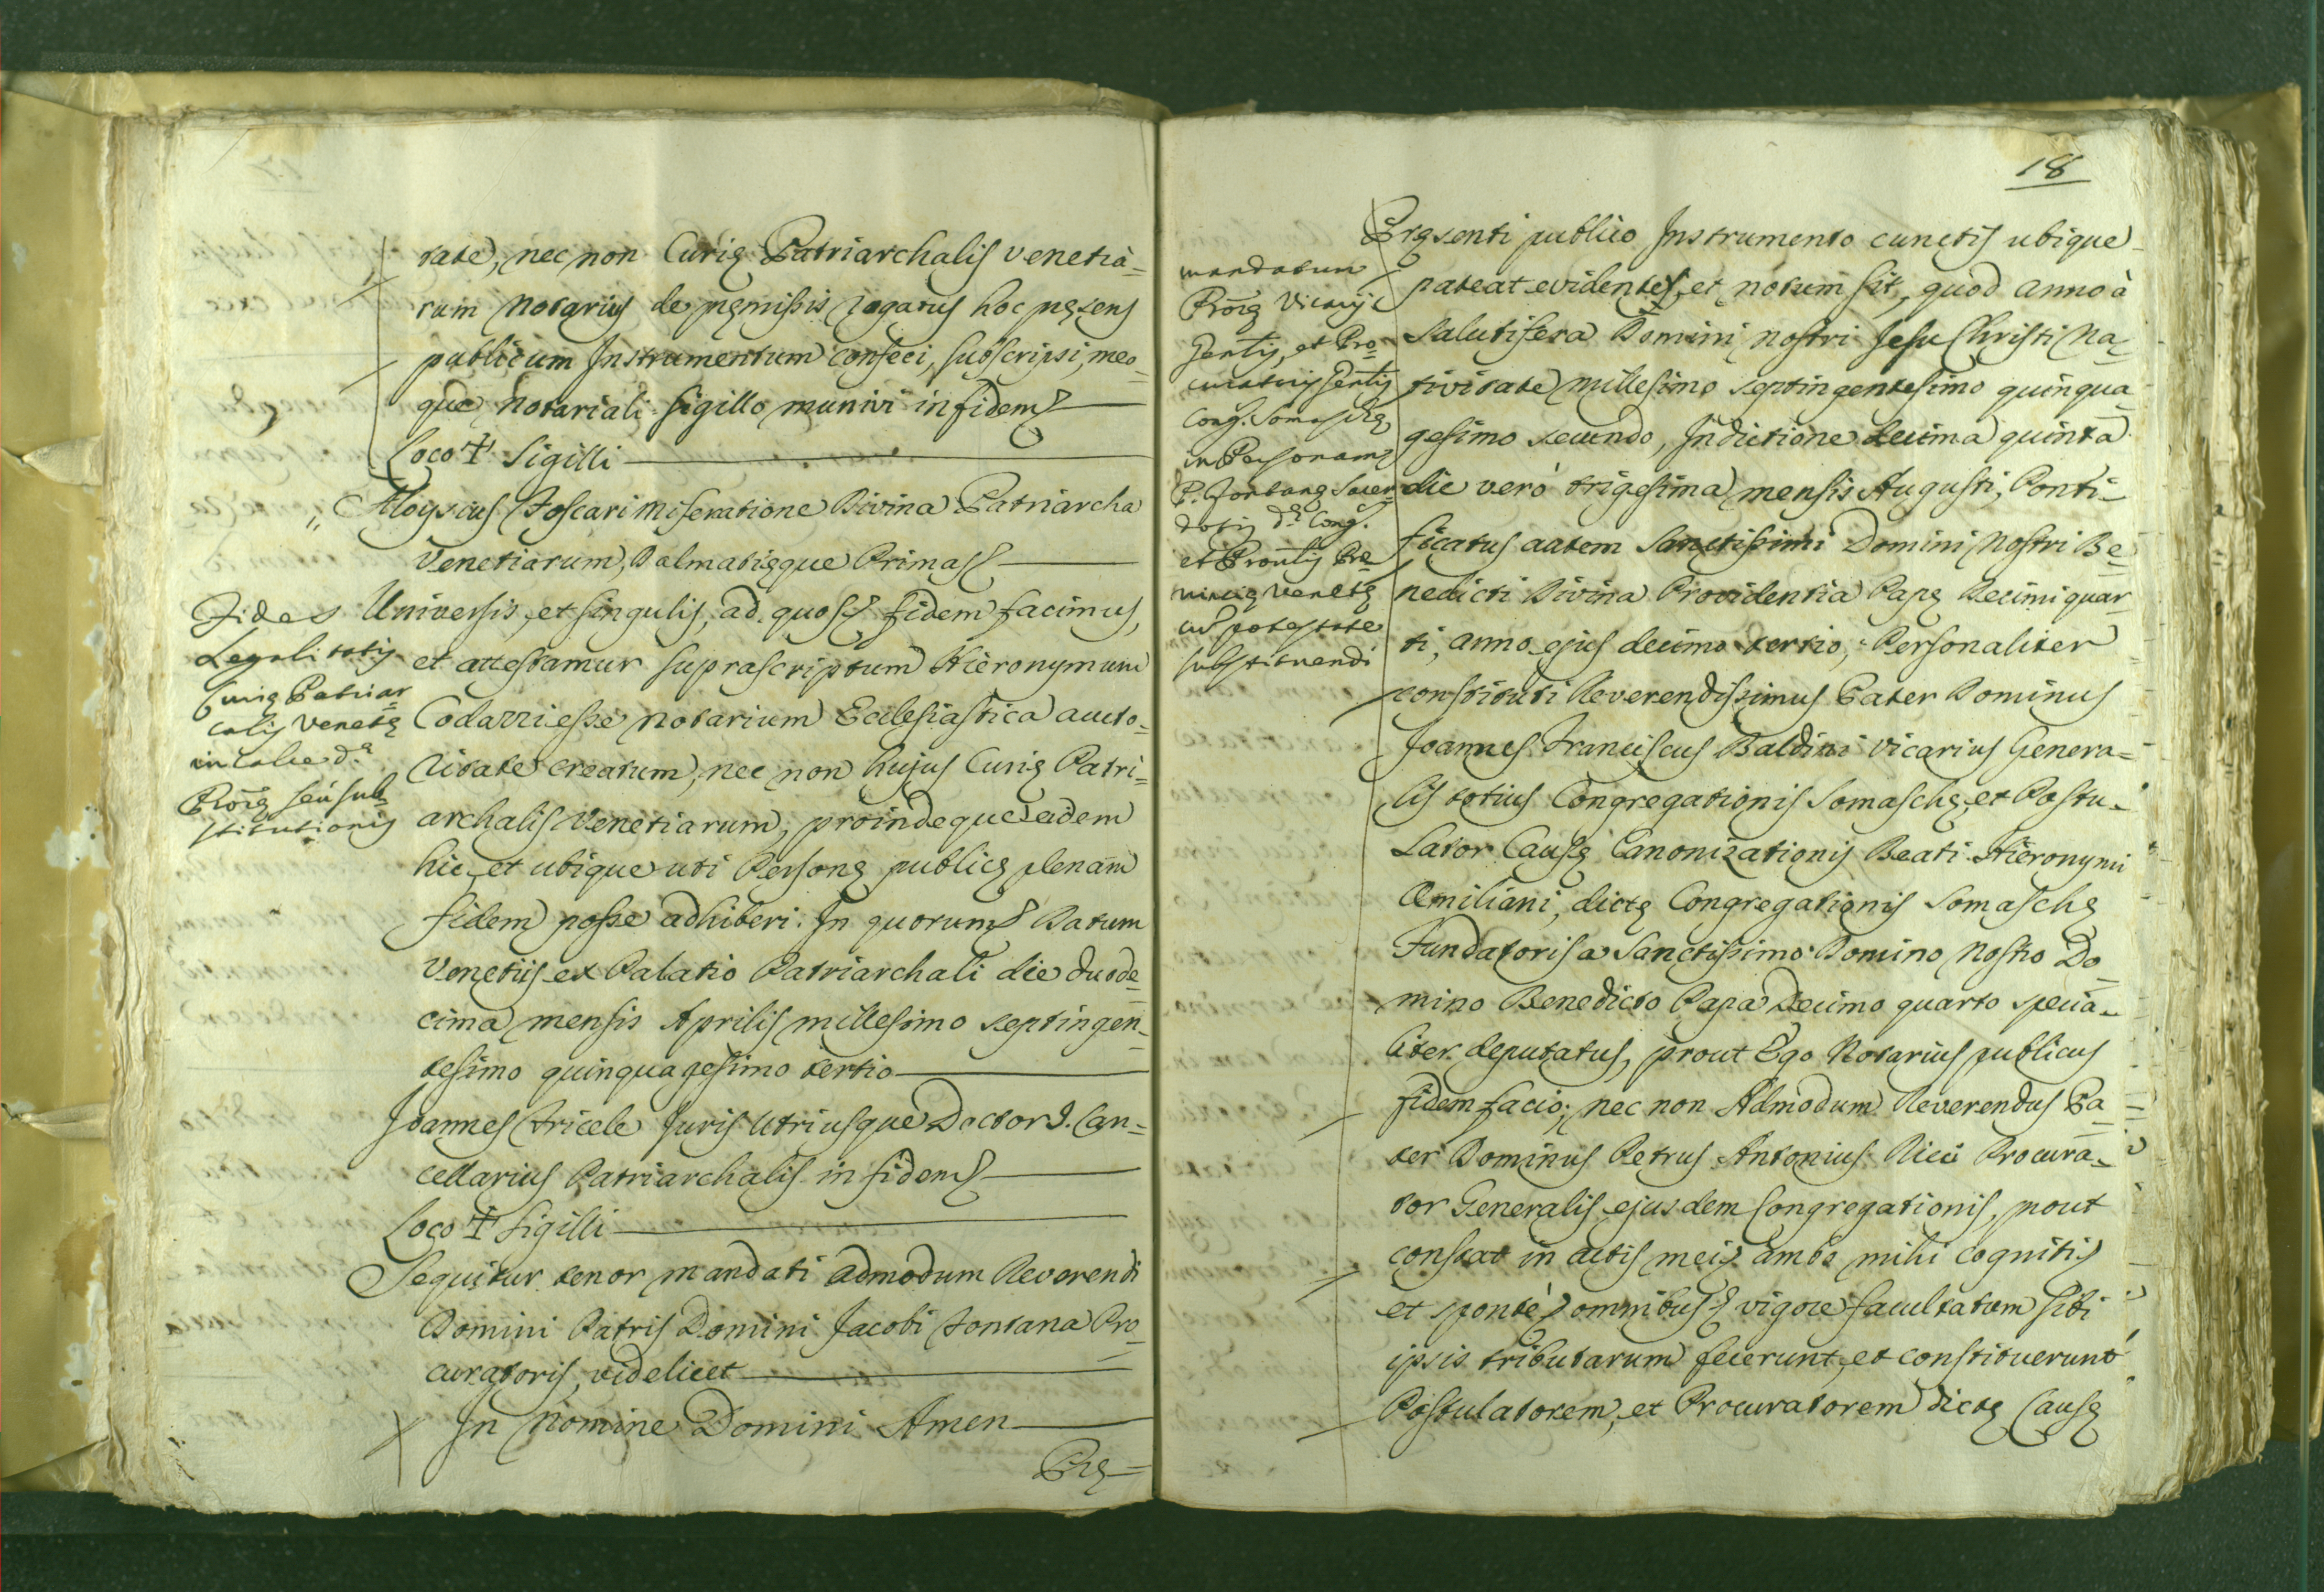 tate, nec non Curię Patriarchalis Venetia=
rum Notarius de pręmissis rogatus hoc pręsens
publicum Instrumentum confeci, subscripsi, meo=
que Notariali sigillo munivi in fidem
Loco + Sigilli
Aloysius Foscari Miseratione Divina Patriarcha
Venetiarum, Dalmatięque Primas
Universis, et singulis, ad quos fidem facimus,
et attestamur suprascriptum Hieronymum
Codazzi esse Notarium Ecclesiastica aucto=
ritate creatum, nec non hujus Curię Patri=
archalis Venetiarum, proindeque eidem
hic, et ubique uti Personę publicę plenam
fidem posse adhiberi. In quorum Datum
Venetiis ex Palatio Patriarchali die duode=
cima mensis Aprilis millesimo septingen=
tesimo quinquagesimo tertio
Joannes Fricele Juris Utriusque Doctor Can=
cellarius Patriarchalis in fidem
Loco + Sigilli
Sequitur tenor mandati Admodum Reverendi
Domini Patris Domini Jacobi Fontana Pro=
curatoris, videlicet
In Nomine Domini Amen
Prę=
Fides
Legalitatis
Curię Patriar=
calis Venetę
in calce d.ę
Proę seu sub=
stitutionis
18
Pręsenti publico Instrumento cunctis ubique
pateat evidenter, et notum sit, quod anno à
Salutifera Domini Nostri Jesu Christi Na=
tivitate millesimo septingentesimo quinqua=
gesimo secundo, Indictione decima quinta
die verò trigesima mensis Augusti, Ponti=
ficatus autem Sanctissimi Domini Nostri Be=
nedicti Divina Providentia Papę Decimi quar=
ti, anno ejus decimo tertio, Personaliter
constituti Reverendissimus Pater Dominus
Joannes Franciscus Baldini Vicarius Genera=
lis totius Congregationis Somaschę, et Postu=
lator Causę Canonizationis Beati Hieronymi
Æmiliani, dictę Congregationis Somaschę
Fundatoris a Sanctissimo Domino Nostro Do=
mino Benedicto Papa Decimo quarto specia=
liter deputatus, prout Ego Notarius publicus
fidem facio; nec non Admodum Reverendus Pa=
ter Dominus Petrus Antonius Ricci Procura=
tor Generalis ejusdem Congregationis, prout
constat in actis meis ambo mihi cogniti
et sponte omnibus vigore facultatum sibi
ipsis tributarum fecerunt, et constituerunt
Postulatorem, et Procuratorem dictę Causę
mandatum
Proę Vicarij
Gentis, et Pro=
curatoris Gentis
Cong. Somaschę
in Personam
P. Fontanę Sacer=
dotis d.ę Cong.
et Prontis Pro=
vincię Venetę
cu potestate
substituendi